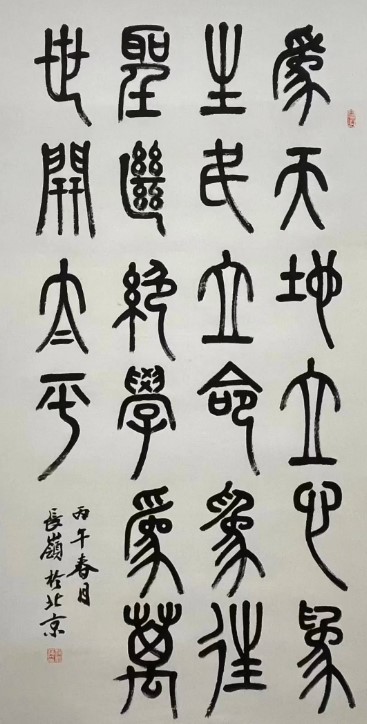 爲天地立心爲
生民立命爲往
聖繼絕學爲萬
世開太平
丙午春月
長嶺於北京